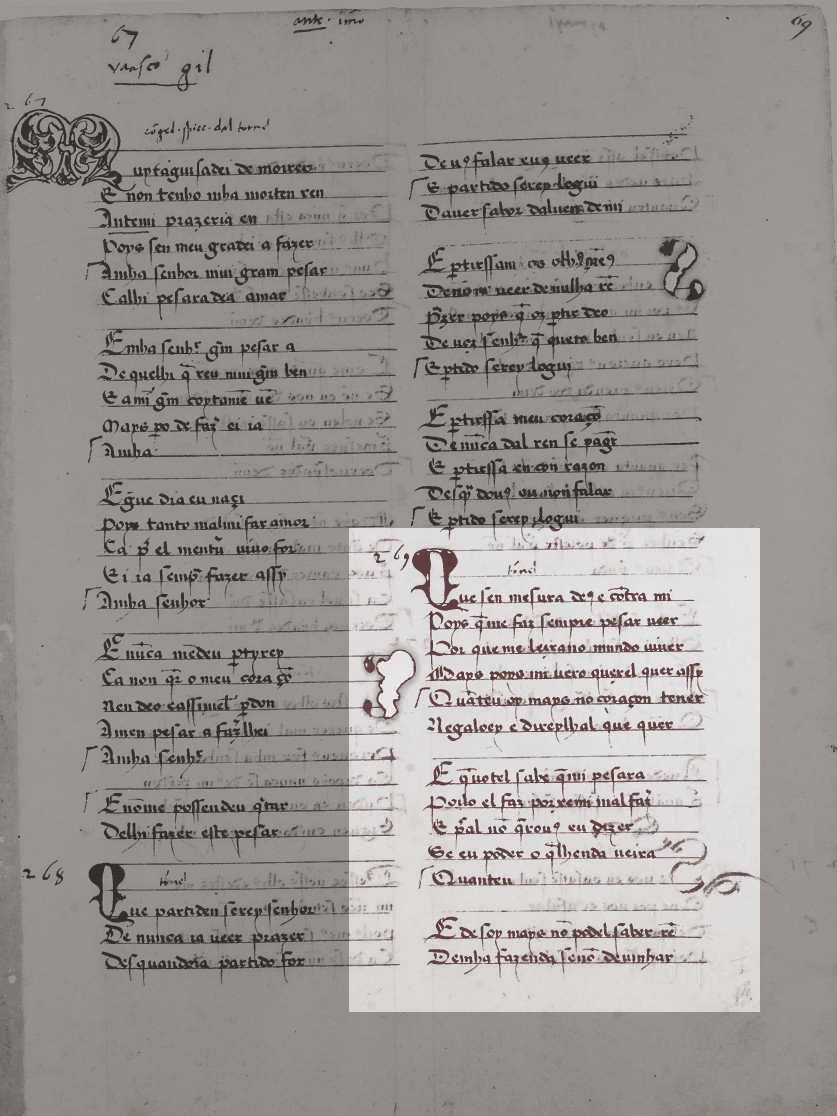 ante · imō
69
67
vaasco gil
267
cōgel. ppiec. dal tornel
Muytaguisadei de moirer
E non tenho mha morten ren
Antemi prazeria en
Poys sen meu gradei a fazer
Amha senhor mui gram pesar
Calhi pesaradea amar
E mha senhr gm̃ pesar a
De quelhi q̃reu mui gm̃ ben
E a mī gm̃ coytamē uē
Mays po de faz ei ia
Amha
E gue dia eu naçi
Poys tanto malmi faz amor
Ca pr el mentu vivo for
E i ia semp̃ fazer assy
Amha senhor
E nūca medeu ptyrey
Ca non qr o meu coraçō
Nen deo eassimel pdon
Amen pesar a fazlhei
Amha senhr
E nōme possendeu qtar
Delhi fazer este pesar
268
tornel
Que partiden serey senhor
De nunca ia ueer prazer
Des quandoia partido for
De u9 falar eu9 ueer
E partido serey logui
Dauer sabor daluem demi
E ptirssam os olh9 me9
De nō ueer de nulha rē
Przer poys q̃ os ptir deo
De uoz senhr q̃ queto ben
E ptido serey logui
E ptirssa meu coraçō
De nūca dal ren se pagr
E ptirssa en con razon
Desq̃ dou9 ou non falar
E ptido serey logui
269
tornel
Que sen mesura de9 e cōtra mi
Poys q̃me faz sempre pesar ueer
Por que me leyxano mundo uiuer
Mays poys mi uero querel quer assy
Quāteu oy mays no coraçon tener
Negaloey e direylhal que quer
E q̃uotel sabe q̃mi pesara
Porlo el faz porremi mal faz
E pal nō q̃rou9 eu dizer
Se eu poder o q̃lhenda ueira
Quanteu
E desoy mays nō podel saber rē
Demha fazenda senō deuinhar